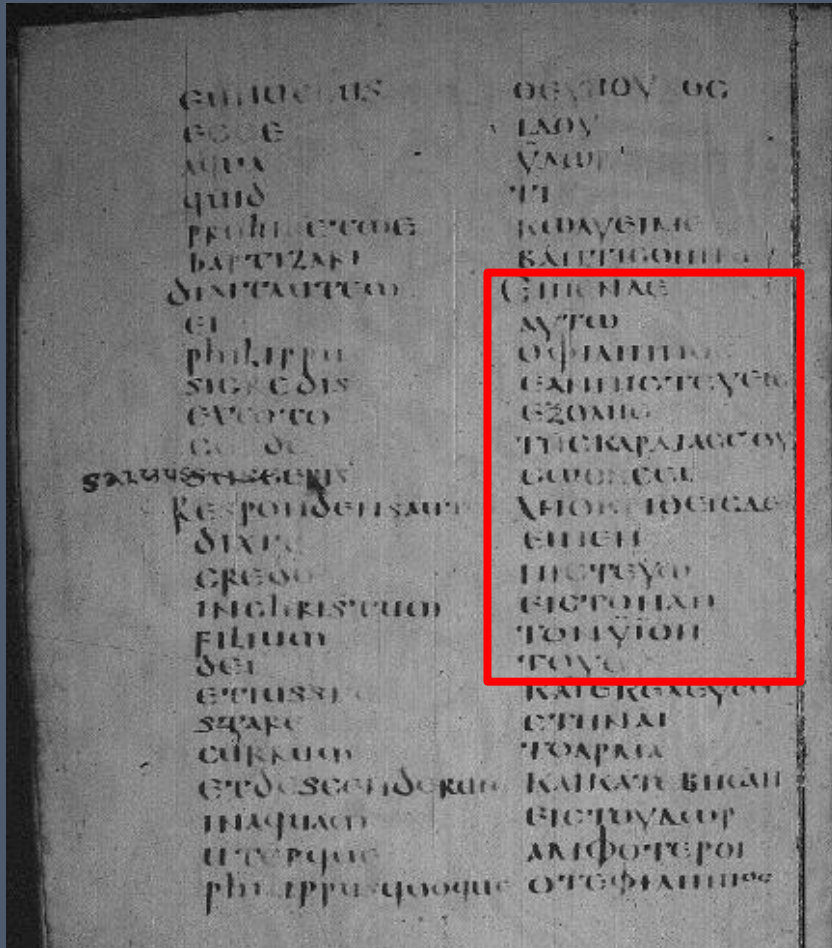 eunuchus
ecce
aqua
quid
prohibetme
baptizari
dixitautem
ei
philippus
sicredis
extoto
corde
saluus eris
Respondensaut
dixit
credo
inchristum
filium
dei
etiussit
stare
currum
etdescenderunt
inaquam
uterque
philippusquoque
ΟΕΥΝΟΥΧΟϹ
ΙΔΟΥ
ΥΔΩΡ
ΤΙ
ΚΩΛΥΕΙΜΕ
ΒΑΠΤΙϹΘΗΝΑΙ
ΕΙΠΕΝΔΕ
ΑΥΤΩ
ΟΦΙΛΙΠΠΟϹ
ΕΑΝΠΙϹΤΕΥΕΙϹ
ΕΞΟΛΗϹ
ΤΗϹΚΑΡΔΙΑϹϹΟΥ
ΑΠΟΚΡΙΘΕΙϹΔΕ
ΕΙΠΕΝ
ΠΙϹΤΕΥΩ
ΕΙϹΤΟΝΧΝ
ΤΟΝΥΙΟΝ
ΤΟΥΘΥ
ΚΑΙΕΚΕΛΕΥϹΕΝ
ϹΤΗΝΑΙ
ΤΟΑΡΜΑ
ΚΑΙΚΑΤΕΒΗϹΑΝ
ΕΙϹΤΟΥΔΩΡ
ΑΜΦΟΤΕΡΟΙ
ΟΤΕΦΙΛΙΠΠΟϹ